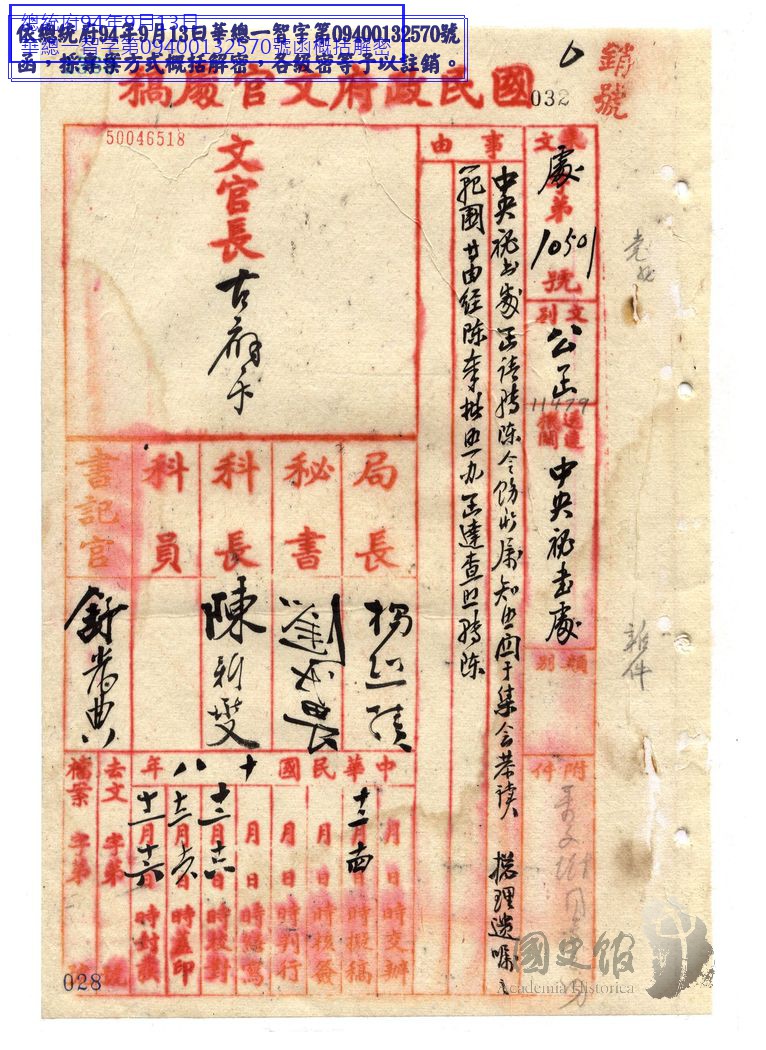 總統府94年9月13日
華總一智字第09400132570號函概括解密
依總統府94年9月13日華總一智字第09400132570號
函，採專案方式概括解密，各級密等予以註銷。
銷號
032
稿處官文府政民國
50046518
處字第1050號
文別
公函
11479
送達機關
中央秘書處
類別
附件
由事
中央秘書處函請轉陳令飭所屬知照關于集会恭讀總理遺囑之
範圍廿由經陳奉批照办函達查照轉陳
文官長
古應芬
局長
秘書
科長
科員
書記官
陳新燮
中華民國十八年
十二月十四日時擬稿
月日時交辦
月日時核簽
月日時判行
月日時繕寫
十二月十六日時校對
時蓋印
十二月十六日時封發
去文字第號
檔案字第
028
國史館
Academia Historica